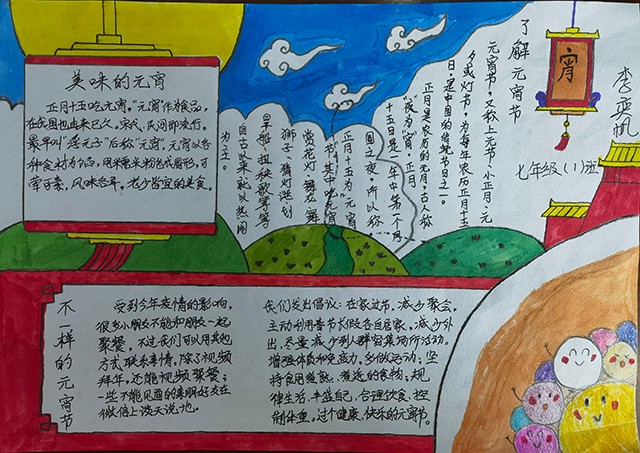 美味的元宵
正月十五吃元宵，"元宵"作为食品，
在我国也由来已久，宋代，民间即流行。
最早叫"浮元子"后称"元宵"，元宵以各
种食材为馅，用糯米粉包成圆形，可
荤可素，风味各异，老少皆宜的美食。
了解元宵节
元宵节，又称上元节、小正月、元
夕或灯节，为每年农历正月十五
日，是中国的传统节日之一。
正月是农历的元月，古人称
"夜"为"宵"，正月
十五日是一年中第一个月
圆之夜，所以称
正月十五为"元宵
节"，其中吃元宵
赏花灯、舞龙、舞
狮子、猜灯谜、划
旱船、扭秧歌等等
自古以来就以热闹
为主。
宵
李亚帆
七年级（1）班
不一样的元宵节
受到今年疫情的影响，
很多小朋友不能和朋友一起
聚餐，不过我们可以用其他
方式联系亲情，除了视频
拜年，还能视频聚餐；
一些不能见面的亲朋好友在
微信上谈天说地。
我们发出倡议：在家过节，减少聚会。
主动利用春节长假各自居家，减少外
出，尽量减少到人群密集场所活动。
增强体质和免疫力，多做运动；坚
持食用煮熟、煮透的食物；规
律生活，丰盛自己，合理饮食，控
制体重。过个健康、快乐的元宵节。